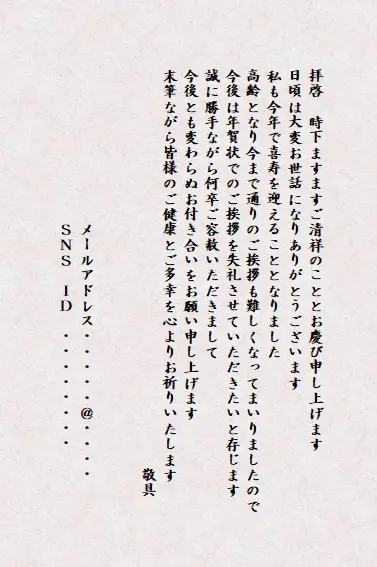 拝啓　時下ますますご清祥のこととお慶び申し上げます
日頃は大変お世話になりありがとうございます
私も今年で喜寿を迎えることとなりました
高齢となり今まで通りのご挨拶も難しくなってまいりましたので
今後は年賀状でのご挨拶を失礼させていただきたいと存じます
誠に勝手ながら何卒ご容赦いただきまして
今後とも変わらぬお付き合いをお願い申し上げます
末筆ながら皆様のご健康とご多幸を心よりお祈りいたします
敬具
メールアドレス・・・・・@・・・・
SNS ID ・・・・・・・・